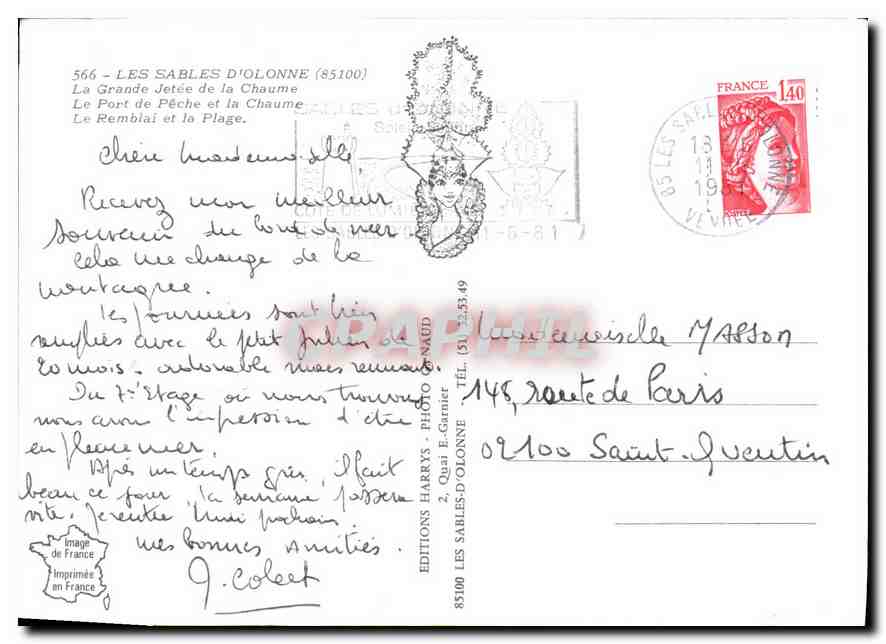 566 - LES SABLES D'OLONNE (85100)
La Grande Jetée de la Chaume
Le Port de Pêche et la Chaume
Le Remblai et la Plage.
SABLES D'OLONNE
FRANCE 1,40
85 LES SABLES D'OLONNE
VENDEE
Chère Mademoiselle,
Recevez mon meilleur
souvenir du bord de mer
Cela me change de la
montagne.
Les journées sont très
remplies avec le petit Julien de
20 mois. adorable mais remuant.
Du 7e Etage où nous trouvons
nous avons l'impression d'être
en pleine mer.
Après un temps gris, il fait
beau ce jour, la semaine passera
vite. Je rentre lundi prochain.
Mes bonnes Amitiés.
Image
de France
Imprimée
en France
EDITIONS HARRYS - PHOTO
2, Quai E.-Garnier
85100 LES SABLES-D'OLONNE - TÉL. (51) 32.53.49
CPAPHIL
Mademoiselle MASSON
148, route de Paris
02100 Saint-Quentin